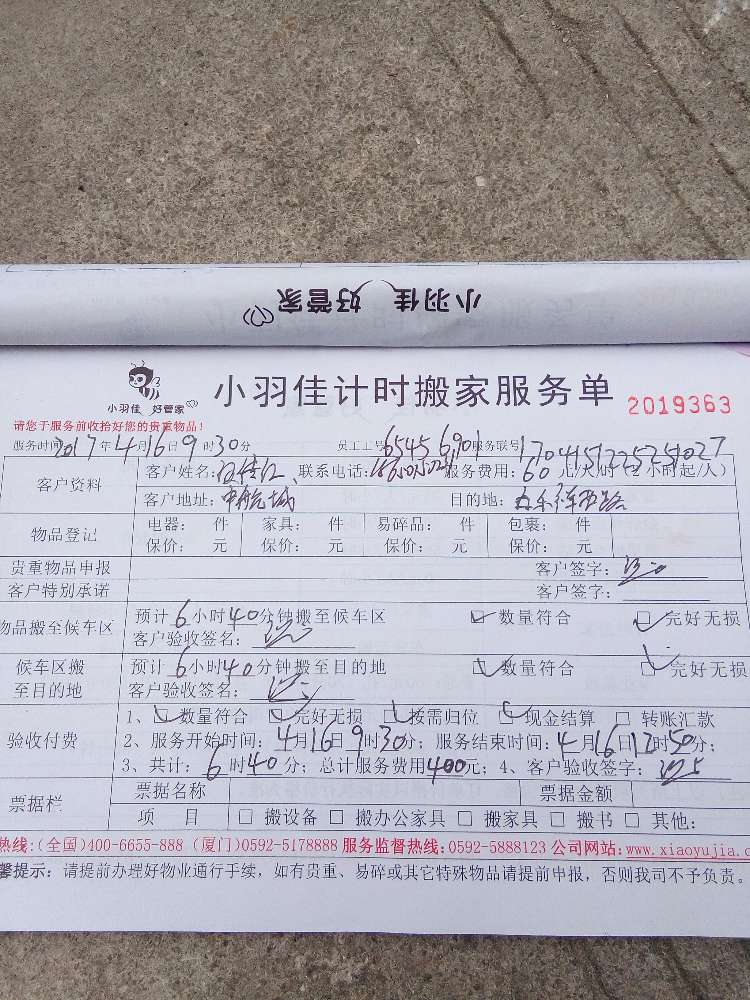 小羽佳 好管家
小羽佳 好管家
小羽佳计时搬家服务单 2019363
请您于服务前收拾好您的贵重物品!
服务时间 2017年4月16日9时30分 员工工号 65456901 服务联号
客户资料 客户姓名: 联系电话: 服务费用:60元/人/时(2小时起/人)
客户地址:中航城 目的地:
物品登记 电器: 件 家具: 件 易碎品: 件 包裹: 件
保价: 元 保价: 元 保价: 元 保价: 元
贵重物品申报 客户签字:
客户特别承诺 客户签字:
物品搬至候车区 预计6小时40分钟搬至候车区 数量符合 完好无损
客户验收签名:
候车区搬至目的地 预计6小时40分钟搬至目的地 数量符合 完好无损
客户验收签名:
验收付费 1、数量符合 完好无损 按需归位 现金结算 转账汇款
2、服务开始时间:4月16日9时30分;服务结束时间:4月16日17时50分;
3、共计:6时40分;总计服务费用400元;4、客户验收签字:
票据栏 票据名称 票据金额
项 目 搬设备 搬办公家具 搬家具 搬书 其他:
热线:(全国)400-6655-888 (厦门)0592-5178888 服务监督热线:0592-5888123 公司网站:www.xiaoyujia.c
馨提示:请提前办理好物业通行手续,如有贵重、易碎或其它特殊物品请提前申报,否则我司不予负责。